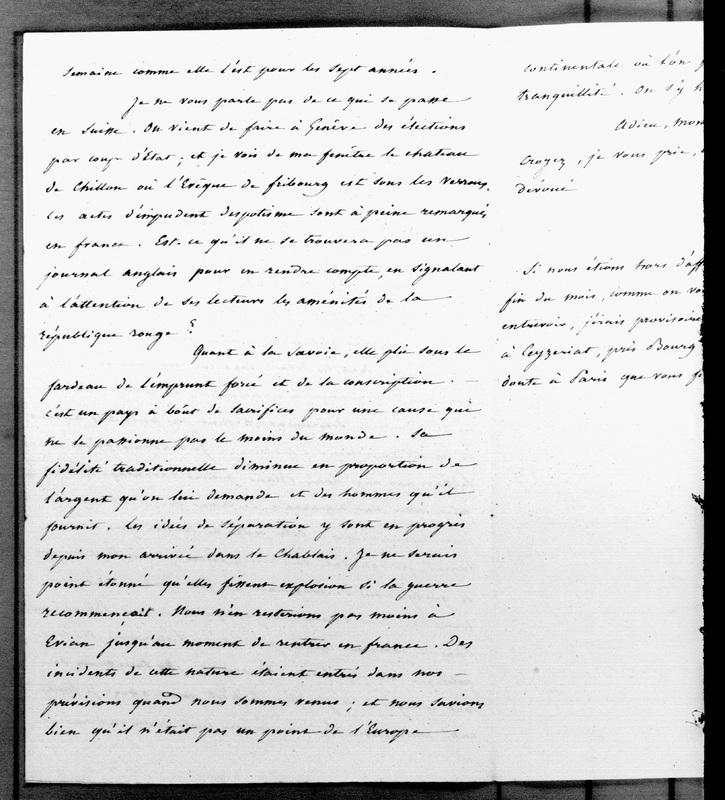 semaine comme elle l'est pour les sept années.
Je ne vous parle pas de ce qui se passe
en Suisse. On vient de faire à Genève des élections
par coup d'état; et je vois de ma fenêtre le chateau
de Chillon où l'Evêque de fribourg est sous les verroux.
Ces actes d'impudent despotisme sont à peine remarqués
en france. Est-ce qu'il ne se trouvera pas un
journal anglais pour en rendre compte en signalant
à l'attention de ses lecteurs les aménités de la
république rouge?
Quant à la Savoie, elle plie sous le
fardeau de l'emprunt forcé et de la conscription. —
c'est un pays à bout de sacrifices pour une cause qui
ne le passionne pas le moins du monde. Sa
fidélité traditionnelle diminue en proportion de
l'argent qu'on lui demande et des hommes qu'il
fournit. Les idées de séparation y sont en progrès
depuis mon arrivée dans le Chablais. Je ne serais
point étonné qu'elles fissent explosion si la guerre
recommençait. Nous n'en resterions pas moins à
Evian jusqu'au moment de rentrer en france. Des
incidents de cette nature étaient entrés dans nos —
prévisions quand nous sommes venus; et nous savions
bien qu'il n'était pas un point de l'Europe
continentale où l'on
tranquillité. On s'y
Adieu, mon
Croyez, je vous prie,
dévoué
Si nous étions hors d'aff
fin du mois, comme on
entrevoir, j'irais provisoire
à Ceyzeriat, près Bourg
doute à Paris que vous